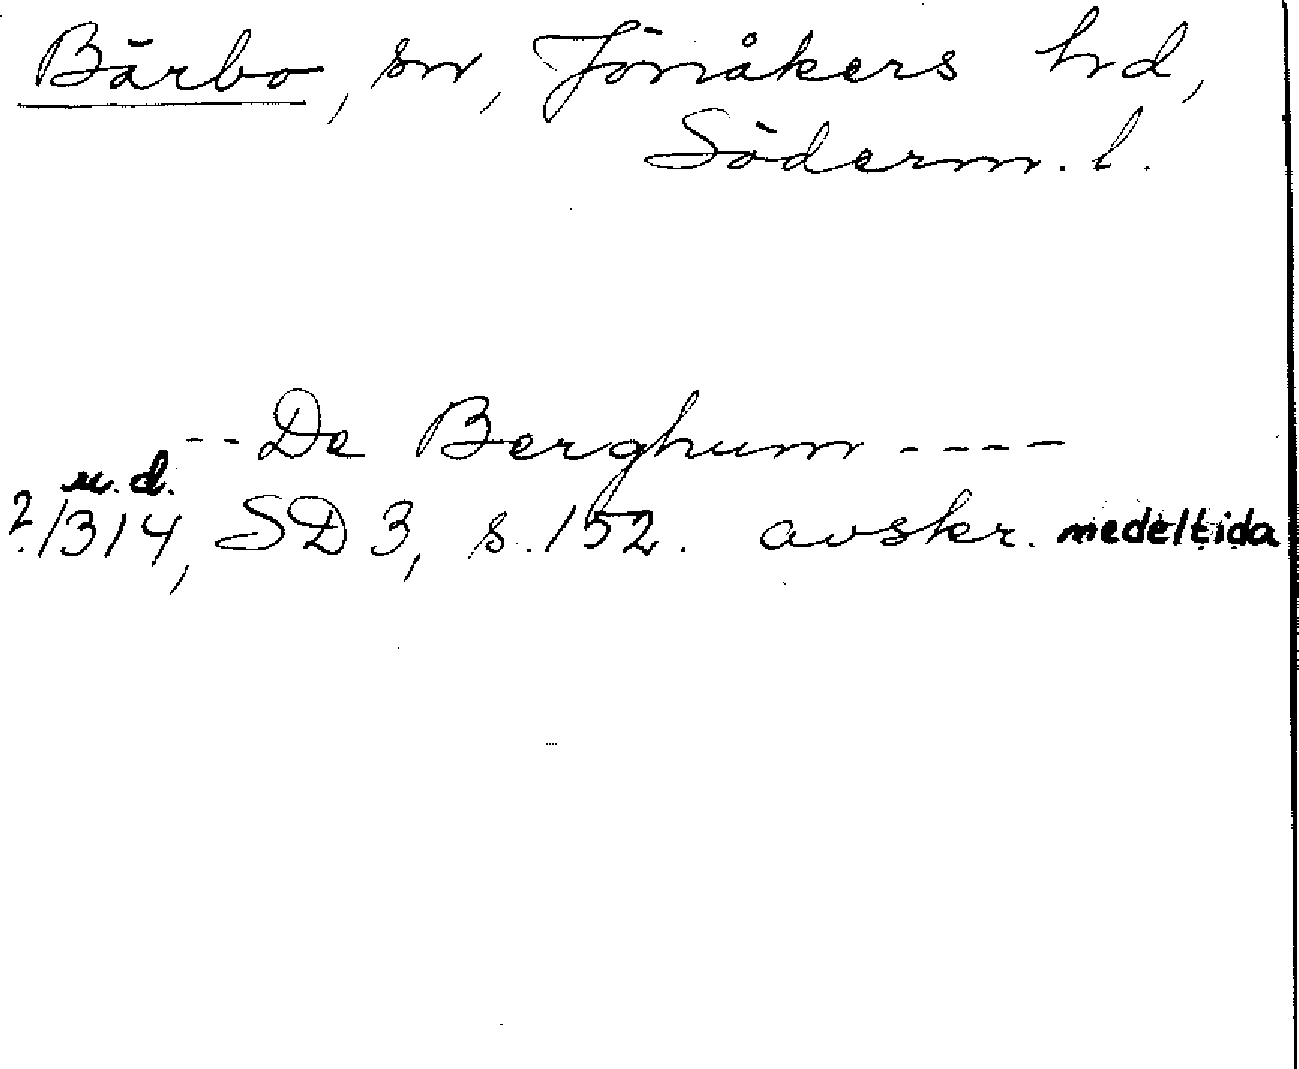 Bärbo, sn, Jönåkers hd,
Söderm. l.
-- De Berghum ----
u. d.
?/1314, SD 3, s. 152. avskr. medeltida